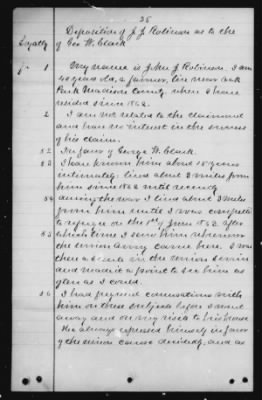 25
Deposition of J. J. Robinson as to the
Loyalty of Geo. W. Clark
1 My name is John J. Robinson. I am
years old, a farmer, live near
Madison County, where I have
resided since 1842.
2 I am not related to the claimant
and have no interest in the success
of his claim.
52 In favor of George W. Clark.
53 I have known him about 15 years
intimately. lived about 3 miles from
him since 1842 until recently
54 during the war I lived about 3 miles
from him until I was compelled
to refugee on the 1st of June 1862. after
55 which time I seen him whenever
the union Army came here. I was
then a scout in the union service
and made it a point to see him as
often as I could.
56 I had frequent conversations with
him on these subjects before I went
away and on my visits to his house
He always expressed himself in favor
of the union cause decidedly, and as